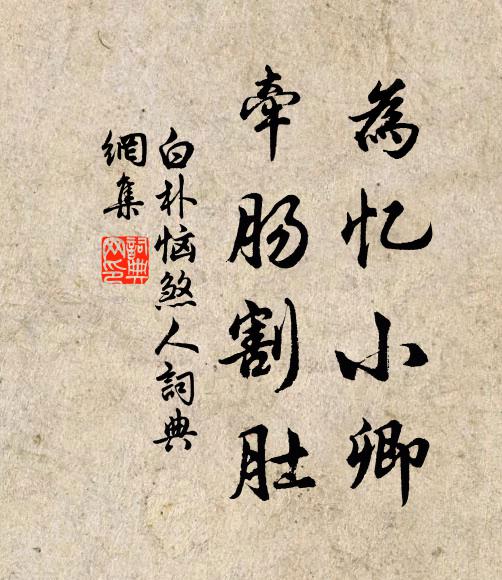 為忆小卿
牵肠割肚
白朴恼煞人詞典
網集
詞典
网印